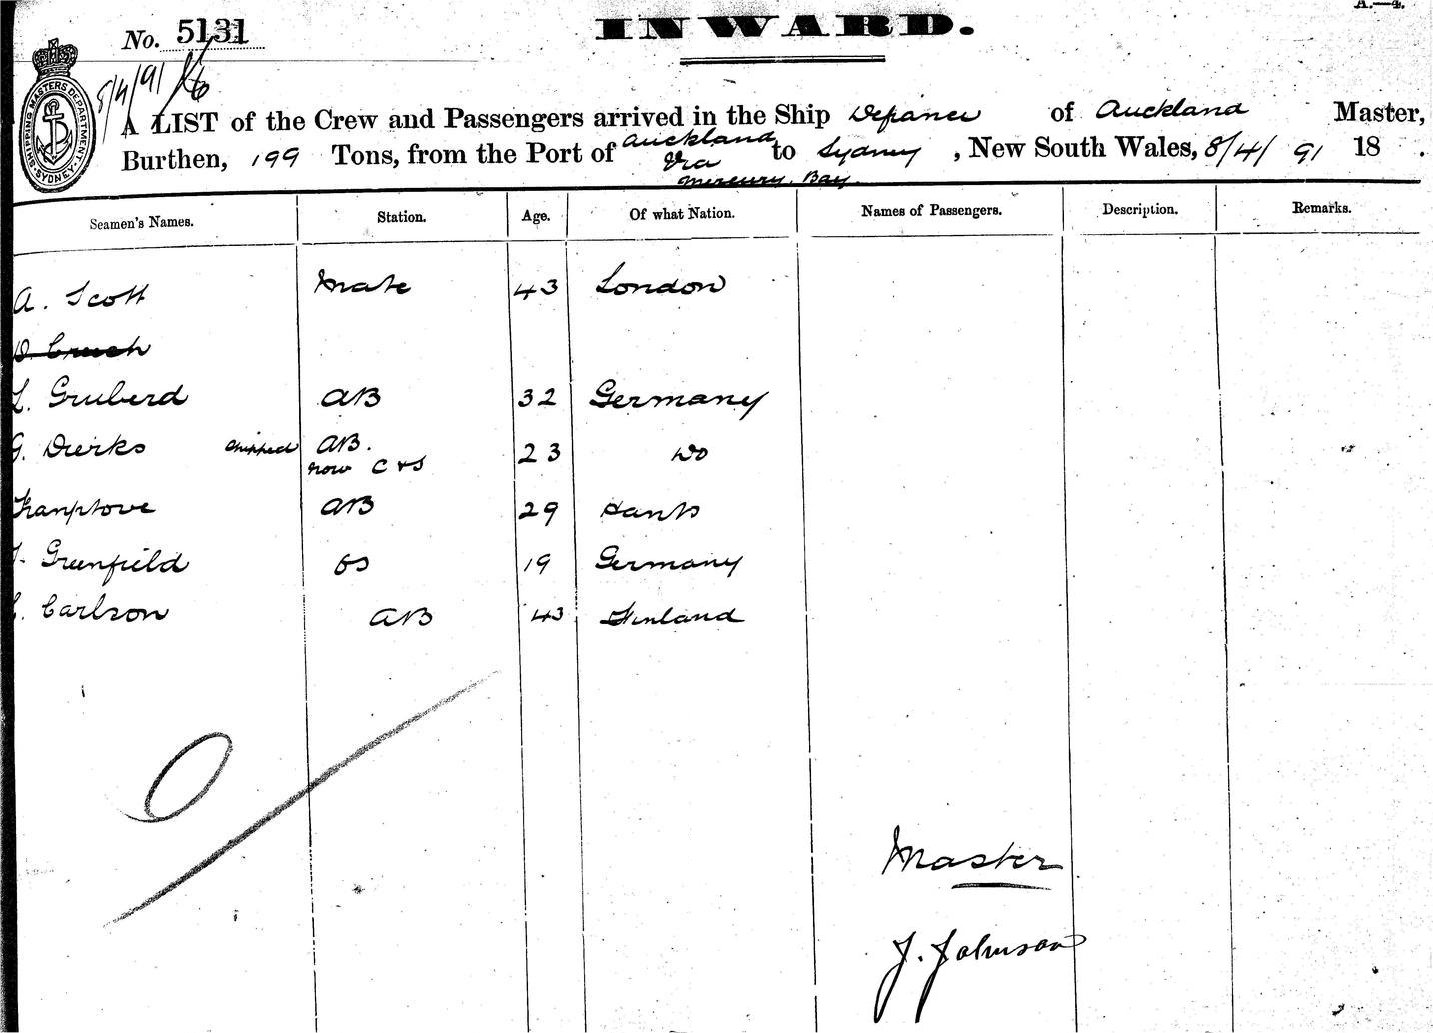 A.—4.
No. 5131
INWARD.
8/4/91
SHIPPING MASTERS DEPARTMENT. SYDNEY.
A LIST of the Crew and Passengers arrived in the Ship Defiance of Auckland Master,
Burthen, 199 Tons, from the Port of Auckland Via Mercury Bay to Sydney, New South Wales, 8/4/91 18 .
Seamen's Names. Station. Age. Of what Nation. Names of Passengers. Description. Remarks.
A. Scott Mate 43 London
L. Gruberd AB 32 Germany
G. Dierks shipped AB. now C & S 23 Do
AB 29 Hants
Greenfield OS 19 Germany
Carlson AB 43 Finland
Master
J. Johnson